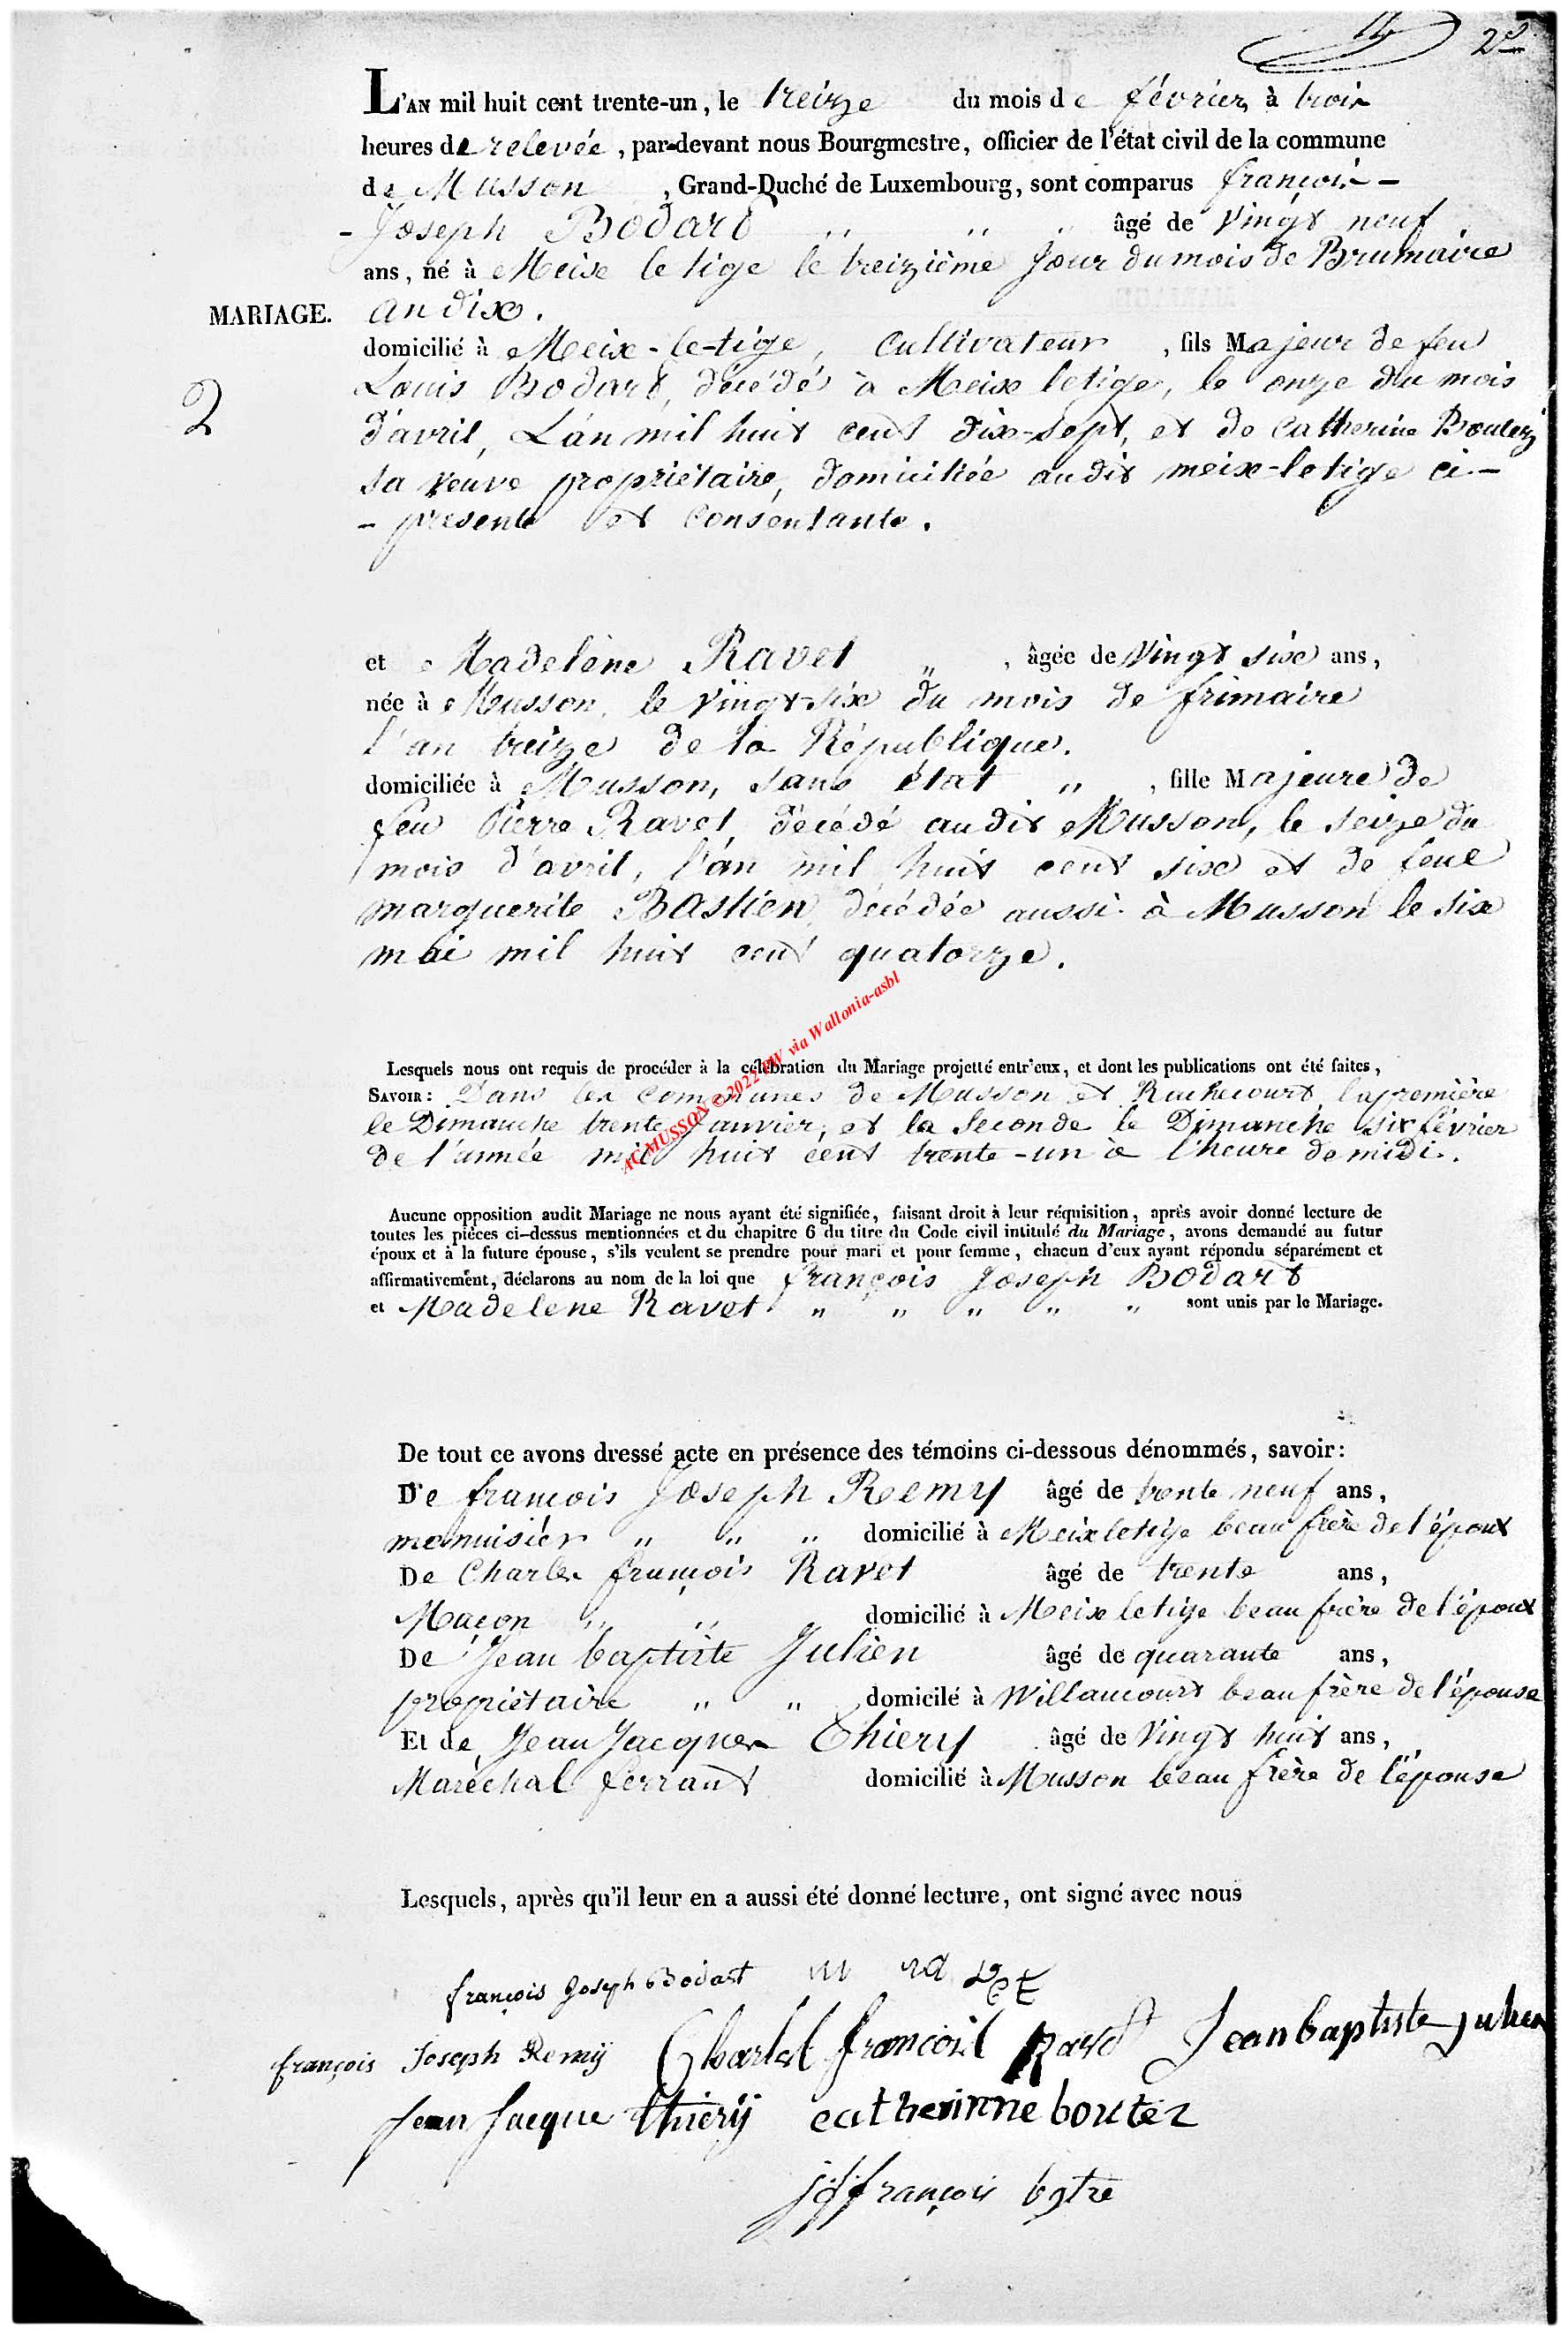 2e
L'AN mil huit cent trente-un, le treize du mois de février, à trois
heures de relevée, par-devant nous Bourgmestre, officier de l'état civil de la commune
de Musson, Grand-Duché de Luxembourg, sont comparus françois-
- Joseph Bodart âgé de vingt neuf
ans, né à Meix le tige le treizième Jour du mois de Brumaire
MARIAGE. an dix.
domicilié à Meix-le-tige, Cultivateur, fils Majeur de feu
2
Louis Bodart, décédé à Meix letige, le onze du mois
d'avril, L'an mil huit cent dix-sept, et de Catherine Boutez
sa veuve propriétaire, domiciliée audit meix-letige ci-
- présente et consentante.
et Madelène Ravet " , âgée de vingt six ans,
née à Musson, le vingt-six du mois de frimaire
l'an treize de la République.
domiciliée à Musson, sans état " , fille Majeure de
feu Pierre Ravet, décédé audit Musson, le seize du
mois d'avril, l'an mil huit cent six et de feue
marguerite Bastien décédée aussi à Musson le six
mai mil huit cent quatorze.
AC MUSSON © 2022 PW via Wallonia-asbl
Lesquels nous ont requis de procéder à la célébration du Mariage projetté entr'eux, et dont les publications ont été faites,
SAVOIR: Dans les communes de Musson et Rachecourt, la première
le Dimanche trente Janvier, et la Seconde le Dimanche six février
de l'année mil huit cent trente-un à l'heure de midi.
Aucune opposition audit Mariage ne nous ayant été signifiée, faisant droit à leur réquisition, après avoir donné lecture de
toutes les pièces ci-dessus mentionnées et du chapitre 6 du titre du Code civil intitulé du Mariage, avons demandé au futur
époux et à la future épouse, s'ils veulent se prendre pour mari et pour femme, chacun d'eux ayant répondu séparément et
affirmativement, déclarons au nom de la loi que françois Joseph Bodart
et Madelene Ravet " " " " " sont unis par le Mariage.
De tout ce avons dressé acte en présence des témoins ci-dessous dénommés, savoir:
De francois Joseph Remy âgé de trente neuf ans,
menuisier " " " domicilié à Meix letige beau frère de l'époux
De Charles françois Ravet âgé de trente ans,
Maçon " " domicilié à Meix letige beau frère de l'époux
De Jean baptiste Julien âgé de quarante ans,
propriétaire " " domicilé à Willancourt beau frère de l'épouse
Et de Jean Jacques Thiery âgé de Vingt huit ans,
Maréchal ferrant domicilié à Musson beau frère de l'épouse
Lesquels, après qu'il leur en a aussi été donné lecture, ont signé avec nous
françois Joseph Bodart
françois Joseph Remÿ Charlel francoil Ravet Jean baptiste Julien
Jean Jacque thierÿ catherinne boutez
françois bgtre